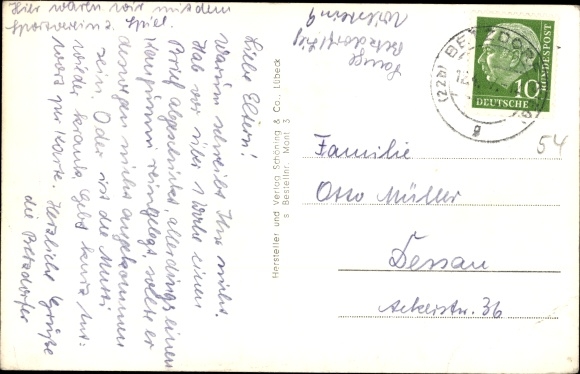 Hier waren wir mit dem
Sportverein z. Spiel.
Liebe Eltern!
Warum schreibt Ihr nicht.
Hab vor über 1 Woche einen
Brief abgeschickt, allerdings einen
reingelegt, sollte er
deswegen nicht angekommen
sein. Oder ist die Mutti
wieder krank. Gebt kurz Ant-
wort per Karte. Herzliche Grüße
die Betzdorfer
Betzdorf/Sieg
Hersteller und Verlag Schöning & Co., Lübeck
s Bestellnr. Mont 3
(22b) BETZDORF
DEUTSCHE BUNDESPOST
10
54
Familie
Otto Müller
Dessau
Ackerstr. 36